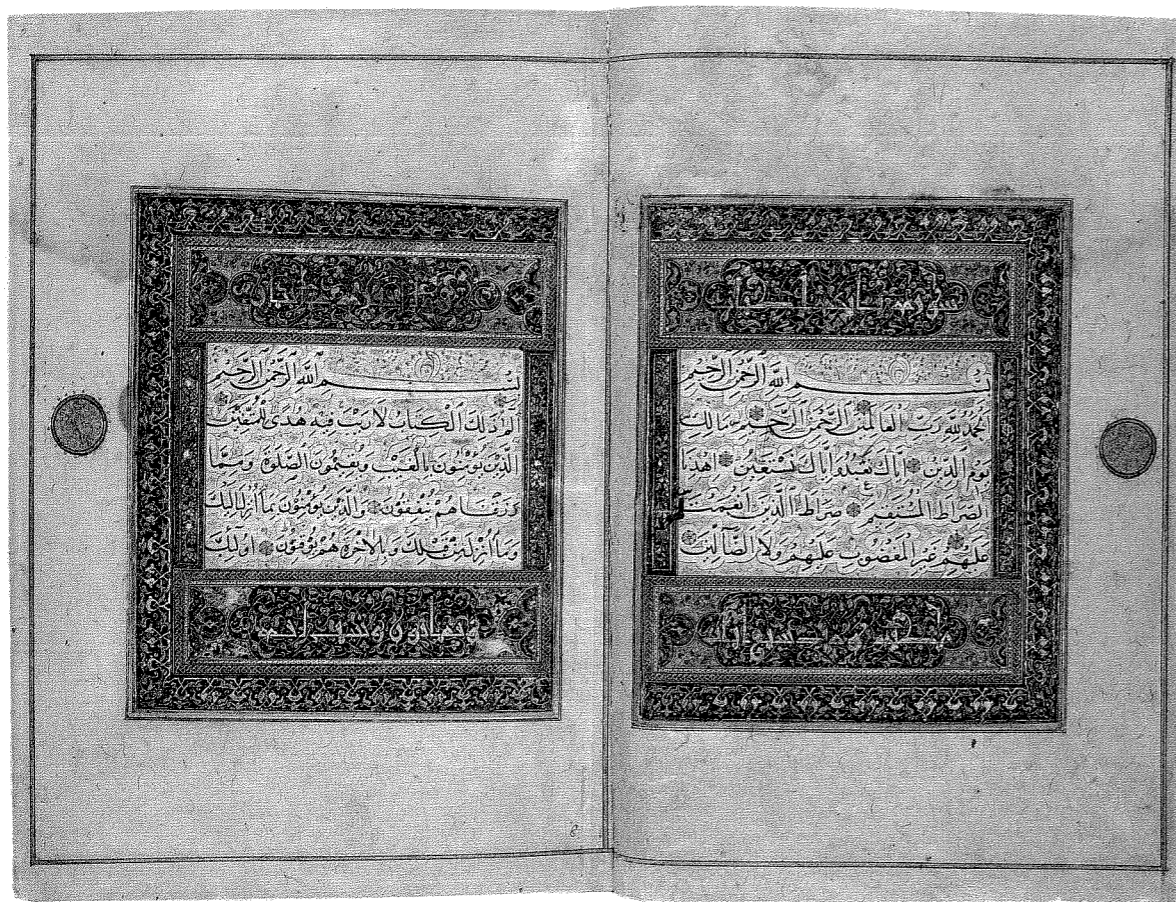 بِسْمِ اللَّهِ الرَّحْمَنِ الرَّحِيمِ
الحَمْدُ لِلَّهِ رَبِّ العَالَمِينَ الرَّحْمَنِ الرَّحِيمِ مَالِكِ
يَوْمِ الدِّينِ اِيَّاكَ نَعْبُدُ وَاِيَّاكَ نَسْتَعِينُ اِهْدِنَا
الصِّرَاطَ المُسْتَقِيمَ صِرَاطَ الَّذِينَ اَنْعَمْتَ
عَلَيْهِمْ غَيْرِ المَغْضُوبِ عَلَيْهِمْ وَلَا الضَّآلِّينَ
بِسْمِ اللَّهِ الرَّحْمَنِ الرَّحِيمِ
الم ذَلِكَ الْكِتَابُ لَا رَيْبَ فِيهِ هُدًى لِلْمُتَّقِينَ
الَّذِينَ يُؤْمِنُونَ بِالْغَيْبِ وَيُقِيمُونَ الصَّلَوةَ وَمِمَّا
رَزَقْنَاهُمْ يُنْفِقُونَ وَالَّذِينَ يُؤْمِنُونَ بِمَا اُنْزِلَ اِلَيْكَ
وَمَا اُنْزِلَ مِنْ قَبْلِكَ وَبِالْاخِرَةِ هُمْ يُوقِنُونَ اُولَئِكَ